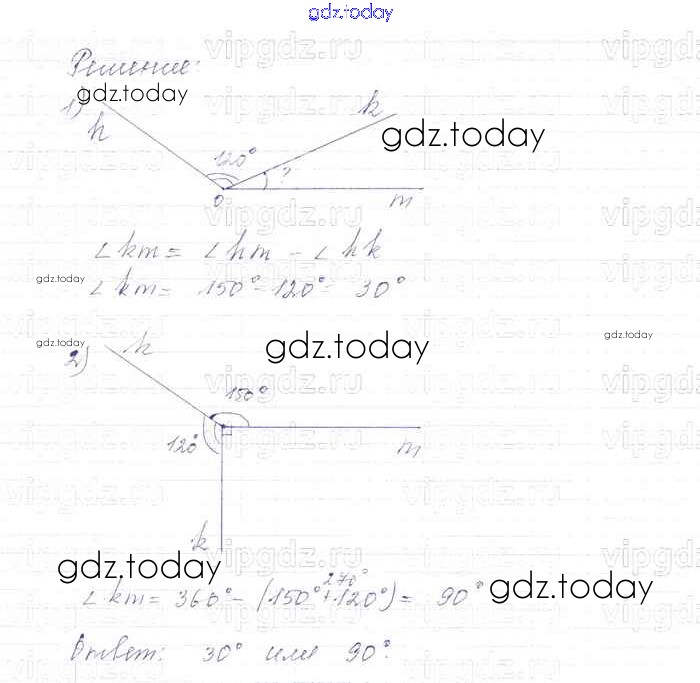 gdz.today
Решение:
gdz.today
1)
h
k
gdz.today
120°
?
O
m
∠km = ∠hm - ∠hk
gdz.today
∠km = 150° - 120° = 30°
gdz.today
gdz.today
gdz.today
2)
h
150°
120°
m
k
gdz.today
270°
∠km = 360° - (150° + 120°) = 90°
gdz.today
Ответ: 30° или 90°.
vipgdz.ru